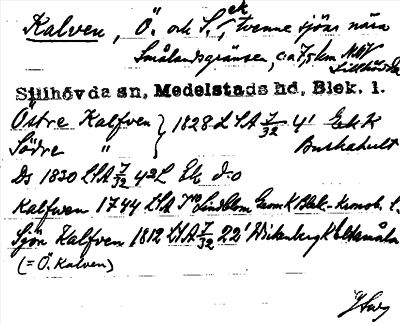 Kalven, Ö. och S., ek
tvenne sjöar nära
Smålandsgränsen, c:a 7,5 km NNV
Sillhövda
Sillhövda sn, Medelstads hd, Blek. l.
Östre Kalfven } 1828 LSA 7/32 4' Ek K
Södre " Buskahult
Ds 1830 LSA 7/32 42L Ek d:o
Kalfwen 1744 LSA Geom K Blek.
Sjön Kalfven 1812 LSA 7/32 22' Wickenberg K
(= Ö. Kalven)